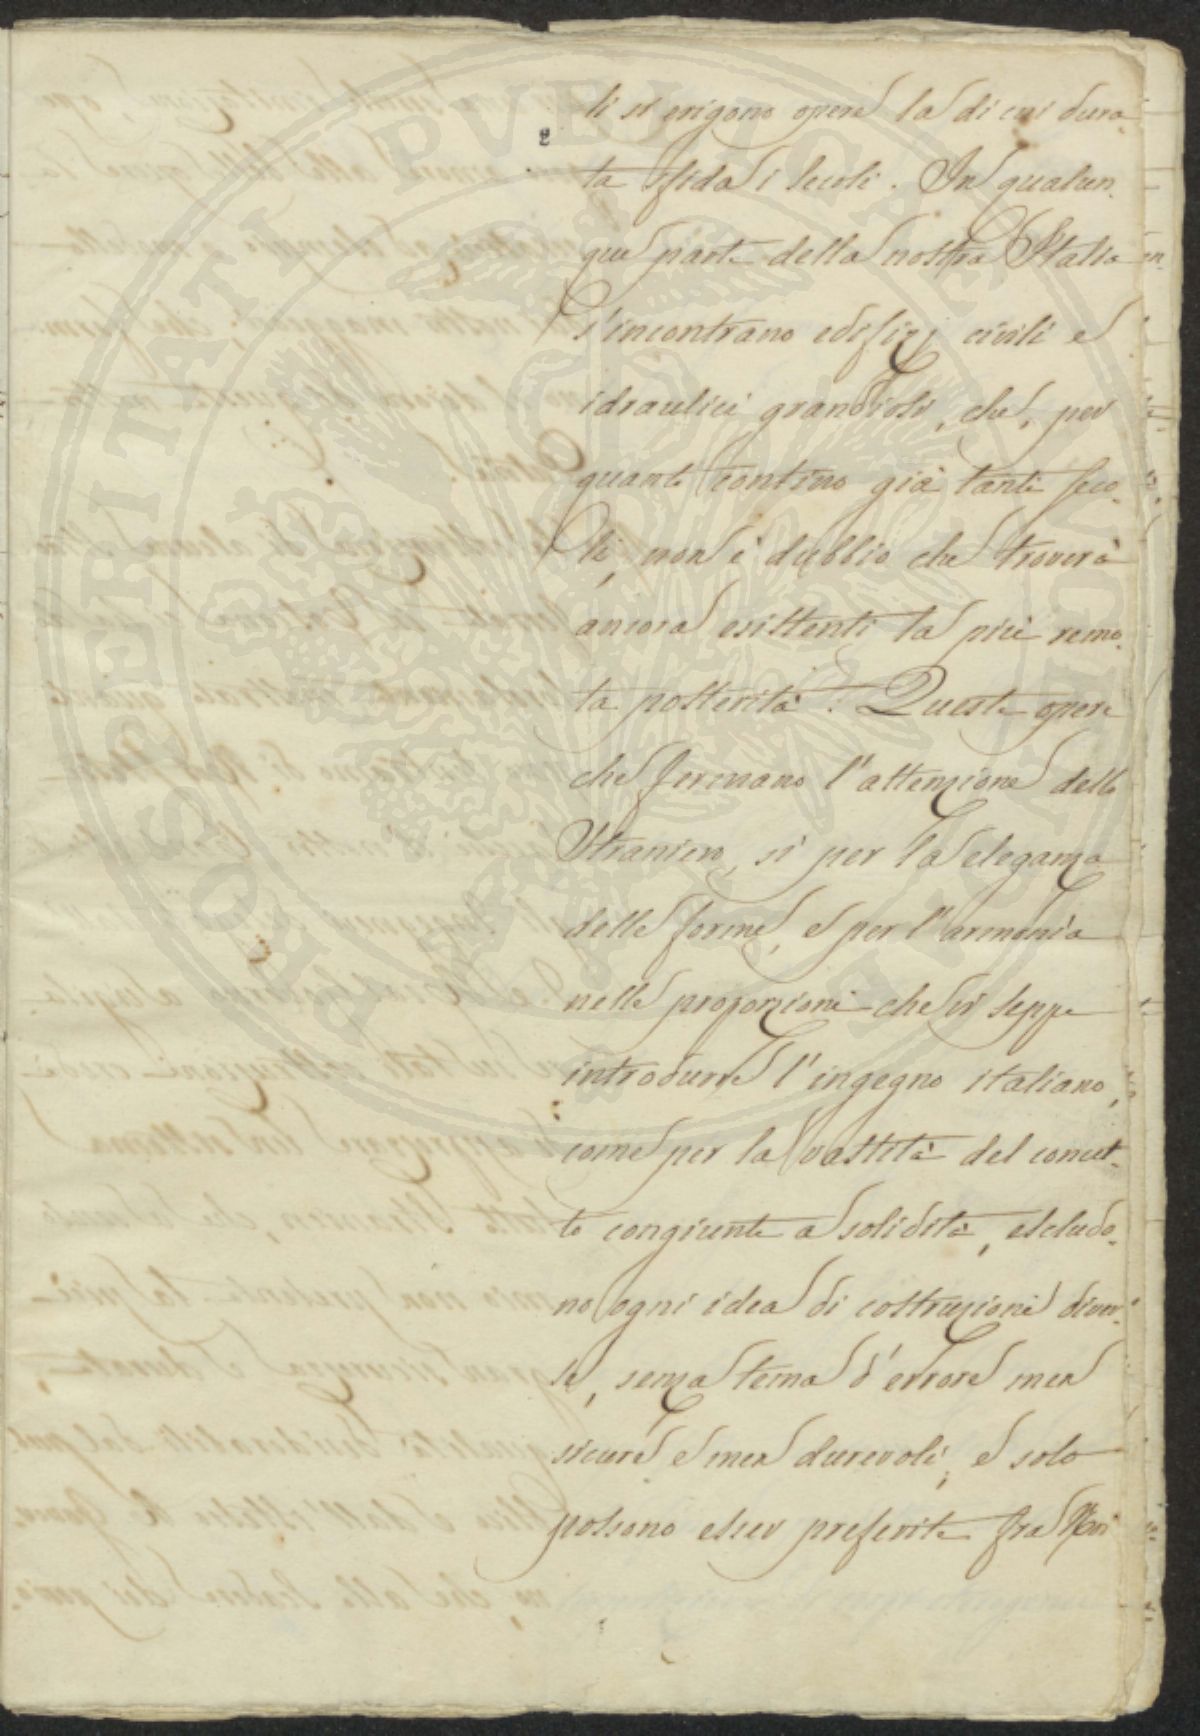 li si erigono opere la di cui dura-
ta sfida i secoli. In qualun-
que parte della nostra Italia
s'incontrano edifizj civili ed
idraulici grandiosi, che, per
quanto contino già tanti seco-
li, non è dubbio che troverà
ancora esistenti la più remo-
ta posterità. Queste opere
che fermano l'attenzione dello
Straniero, si per la eleganza
delle forme, e per l'armonia
nelle proporzioni che vi seppe
introdurre l'ingegno italiano,
come per la vastità del concet-
to congiunto a solidità, escludo-
no ogni idea di costruzioni diver-
se, senza tema d'errore men
sicure e men durevoli, e solo
possono esser preferite fra Noi
PROSPERITATI PVBLICAE AVGENDAE